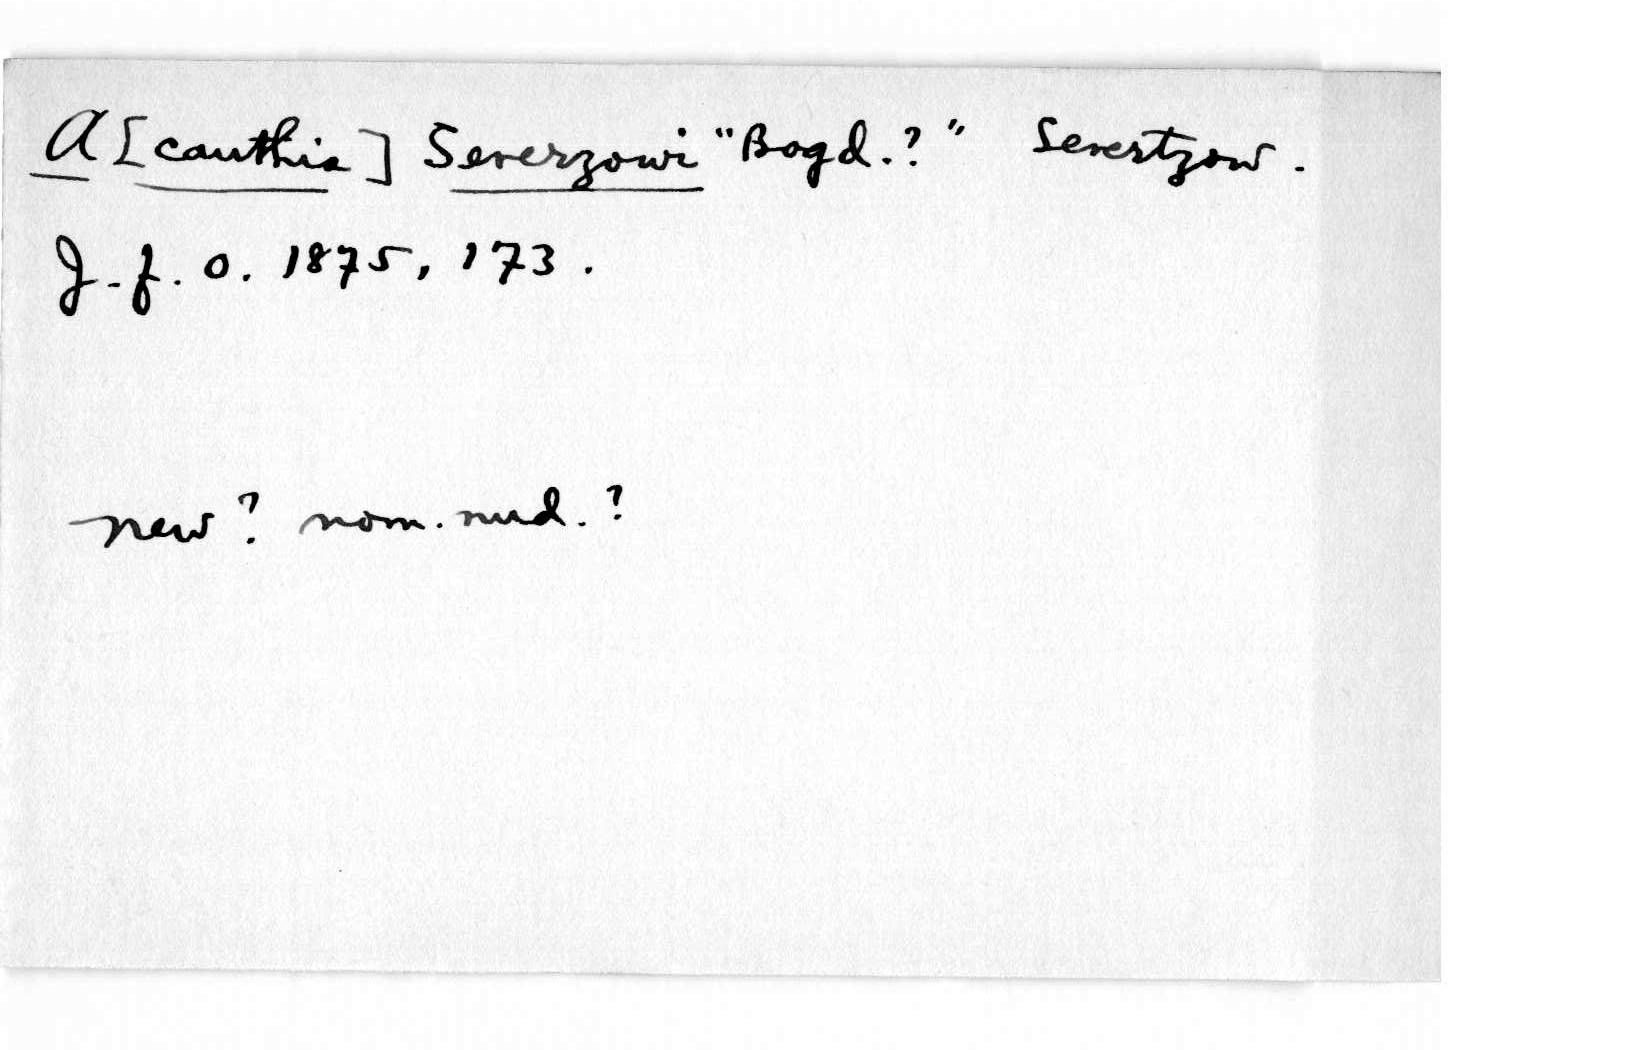 A[canthis] Severzowi "Bogd.?" Severtzow.
J.f.O. 1875, 173.
new? nom. nud.?